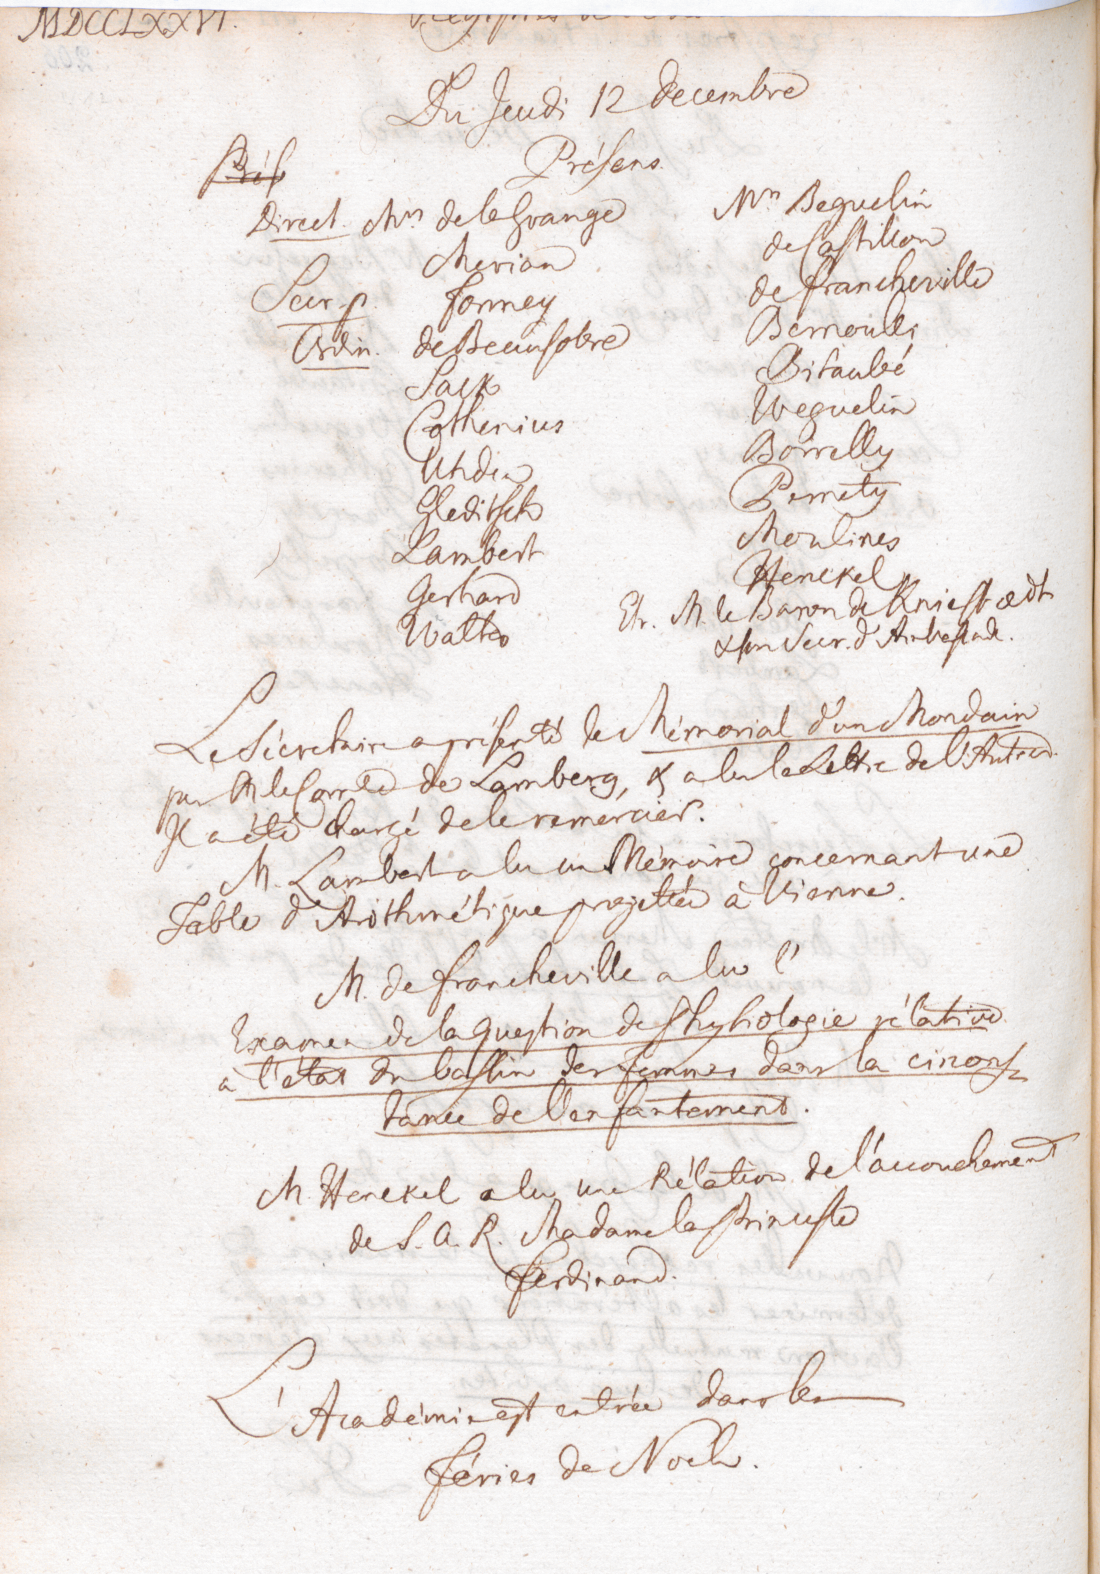 MDCCLXXVI.
Du Jeudi 12 Decembre
Prés
Présens
Direct. Mrs de la Grange
Merian
Secr. p. Formey
Ordin. de Beausobre
Sack
Cothenius
Uhden
Gleditsch
Lambert
Gerhard
Walter
Mrs Beguelin
de Castillon
de Francheville
Bernoulli
Bitaubé
Weguelin
Borrelly
Pernety
Moulines
Henckel
Etr. M. le Baron de Kniestædt
& son Secr. d'Ambassade.
Le Sécretaire a présenté le Mémorial d'un Mondain
par M. le Comte de Lamberg, & a lu la Lettre de l'Auteur.
Il a été chargé de le remercier.
M. Lambert a lu un Mémoire concernant une
Table d'Arithmétique projettée à Vienne.
M. de Francheville a lu l'
Examen de la question de Physiologie rélative
à l'état du bassin des femmes dans la circons
tance de l'enfantement.
M. Henckel a lu une Rélation de l'accouchement
de S. A. R. Madame la Princesse
Ferdinand.
L'Académie est entrée dans les
féries de Noël.